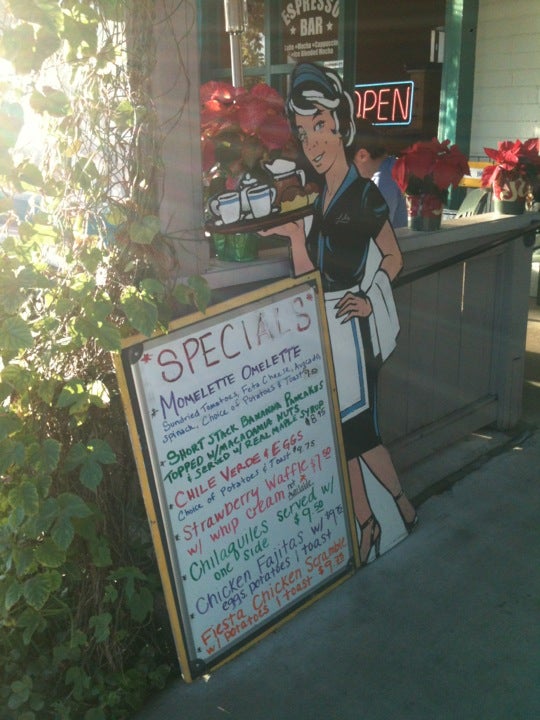 ESPRESSO
BAR
OPEN
SPECIALS
MOMELETTE OMELETTE
Sundried Tomatoes, Feta Cheese, Avocado
Spinach, Choice of Potatoes & Toast
SHORT STACK BANANA PANCAKES
TOPPED W/MACADAMIA NUTS
& SERVED W/ REAL MAPLE SYRUP
CHILE VERDE & EGGS
Choice of Potatoes & Toast $9.75
Strawberry Waffle $7.50
w/ whip cream
Chilaquiles served w/
one side $9.50
Chicken Fajitas w/
eggs potatoes / toast
Fiesta Chicken Scramble
w/ potatoes / toast